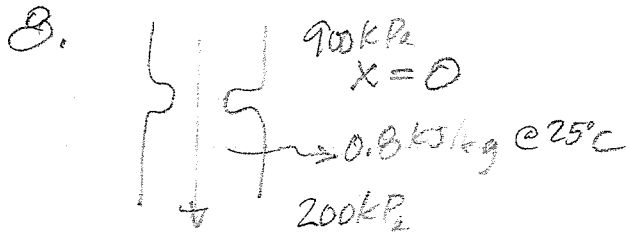 8.
900kPa
x=0
0.8kJ/kg @25°C
200kPa